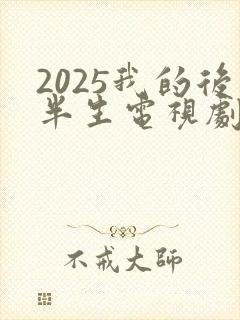 2025我的後
半生電視劇
不戒大師